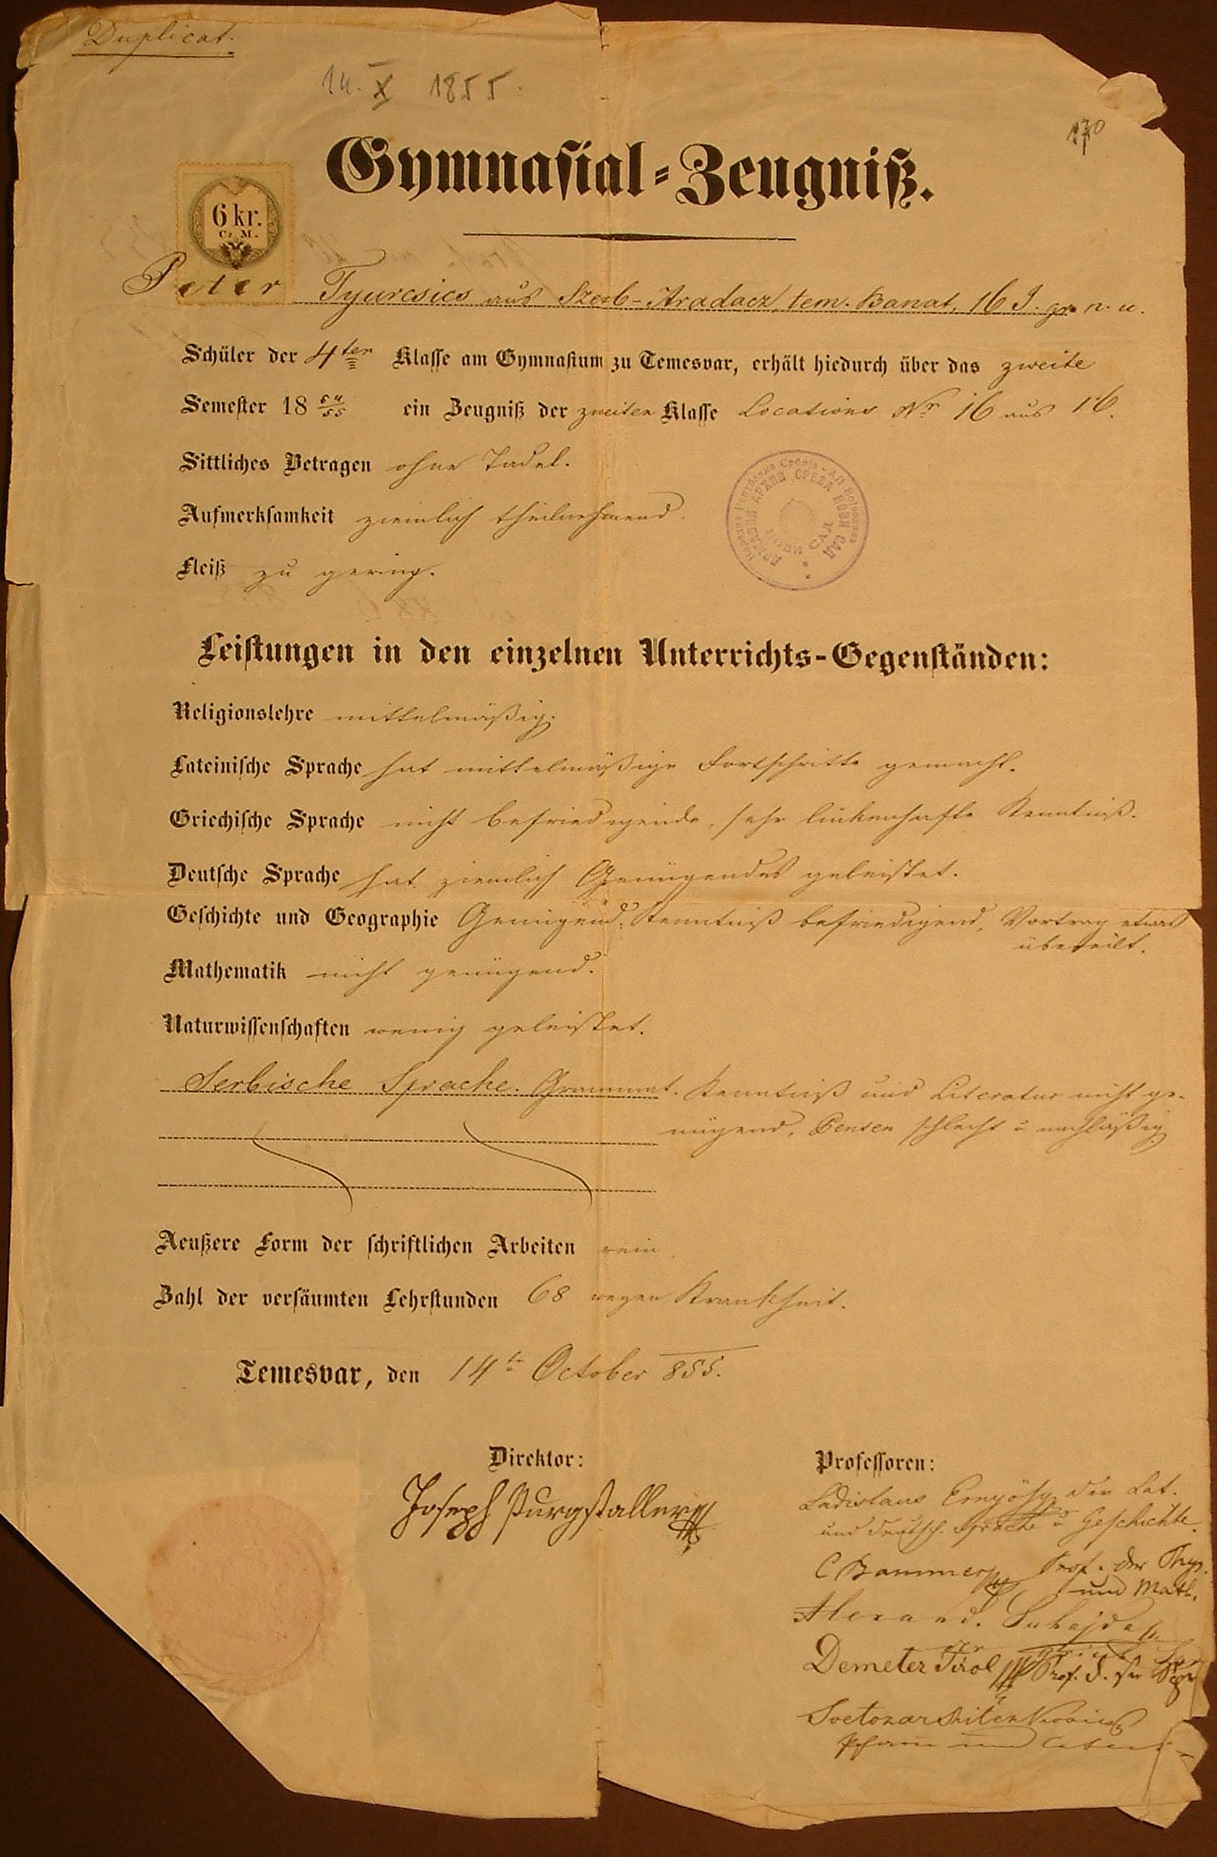 Duplicat.
14. X 1855.
170
Gymnasial-Zeugniß.
6 kr.
C. M.
Peter Tyurcsics aus Szerb-Aradacz, tem. Banat, 16 J. gr. n. u.
Schüler der 4ten Klasse am Gymnasium zu Temesvar, erhält hiedurch über das zweite
Semester 18 54/55 ein Zeugniß der zweiten Klasse Locations Nr 16 aus 16.
Sittliches Betragen ohne Tadel.
Aufmerksamkeit ziemlich theilnehmend.
Fleiß zu gering.
АРХИВ СРЕЗА НОВИ САД
НОВИ САД
Leistungen in den einzelnen Unterrichts-Gegenständen:
Religionslehre mittelmäßig.
Lateinische Sprache hat mittelmäßige Fortschritte gemacht.
Griechische Sprache nicht befriedigende, sehr lückenhafte Kenntniß.
Deutsche Sprache hat ziemlich Genügendes geleistet.
Geschichte und Geographie Genügend, Kenntniß befriedigend, Vortrag etwas
übereilt.
Mathematik nicht genügend.
Naturwissenschaften wenig geleistet.
Serbische Sprache. Grammat. Kenntniß und Literatur nicht ge-
nügend, Pensen schlecht u nachläßig
Aeußere Form der schriftlichen Arbeiten rein
Zahl der versäumten Lehrstunden 68 wegen Krankheit.
Temesvar, den 14te October 855.
Direktor:
Joseph Purgstaller
Professoren:
Ladislaus der Lat.
und deutsch. Sprache u Geschichte.
C Bammer Prof. der Phys.
und Math.
Alexand. Suhajda
Demeter Tirol Prof. d. Spr
Svetozar
Pfarrer und